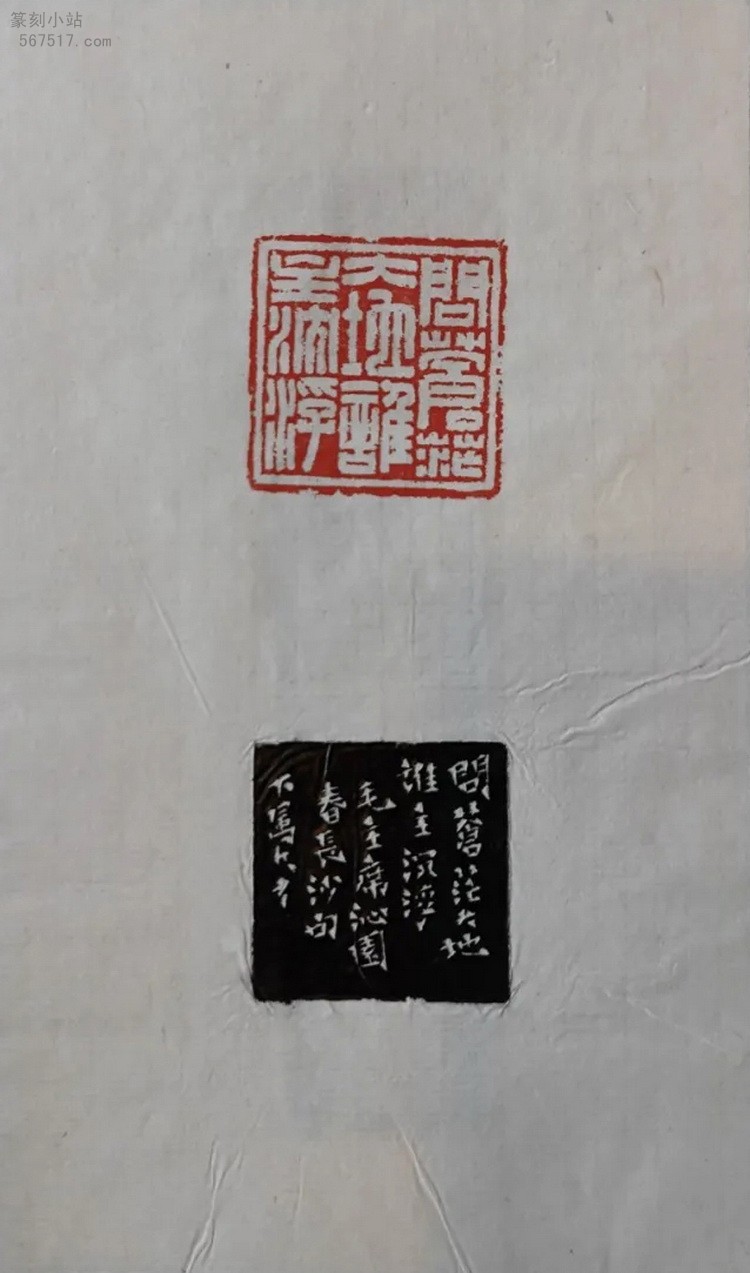 篆刻小站
567517.com
問蒼茫
大地誰
主沉浮
問蒼茫大地
誰主沉浮
毛主席沁園
春長沙句